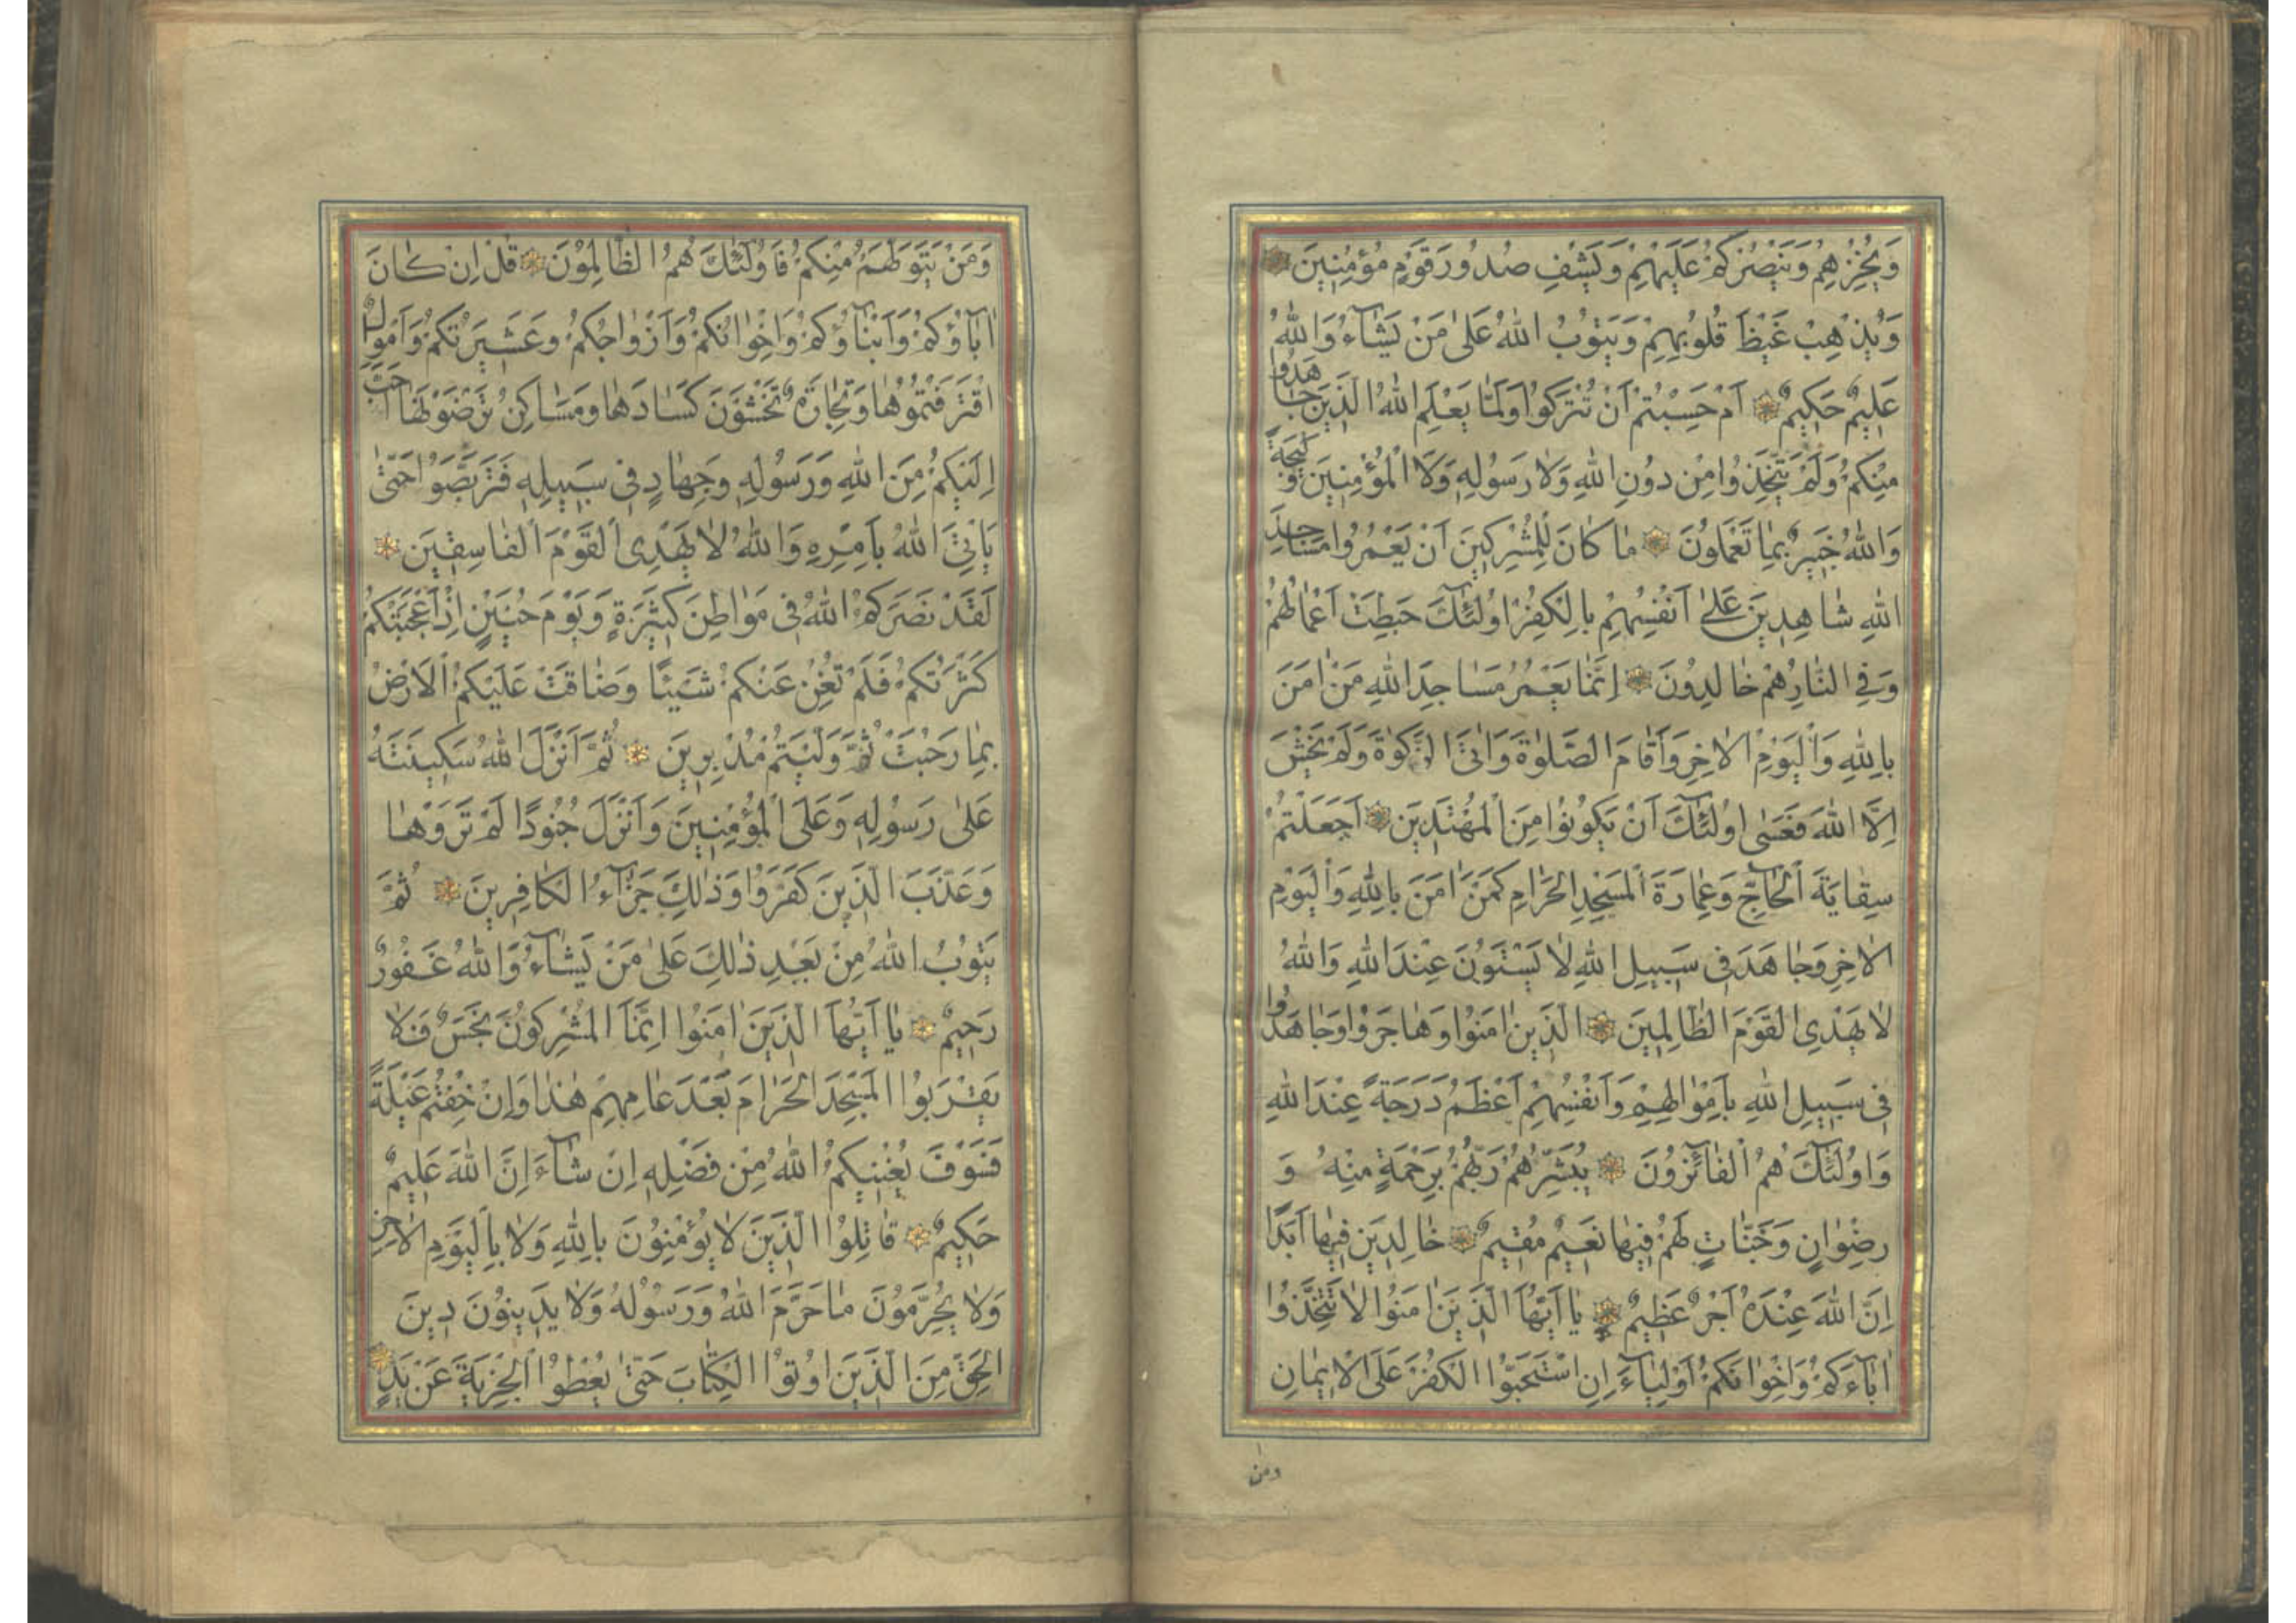 وَيُخْزِهِمْ وَيَنْصُرْكُمْ عَلَيْهِمْ وَيَشْفِ صُدُورَ قَوْمٍ مُؤْمِنِينَ
وَيُذْهِبْ غَيْظَ قُلُوبِهِمْ وَيَتُوبُ اللّٰهُ عَلٰى مَنْ يَشَآءُ وَاللّٰهُ
عَلِيمٌ حَكِيمٌ اَمْ حَسِبْتُمْ اَنْ تُتْرَكُوا وَلَمَّا يَعْلَمِ اللّٰهُ الَّذِينَ جَاهَدُوا
مِنْكُمْ وَلَمْ يَتَّخِذُوا مِنْ دُونِ اللّٰهِ وَلَا رَسُولِهِ وَلَا الْمُؤْمِنِينَ وَلِيجَةً
وَاللّٰهُ خَبِيرٌ بِمَا تَعْمَلُونَ مَا كَانَ لِلْمُشْرِكِينَ اَنْ يَعْمُرُوا مَسَاجِدَ
اللّٰهِ شَاهِدِينَ عَلٰى اَنْفُسِهِمْ بِالْكُفْرِ اُولٰٓئِكَ حَبِطَتْ اَعْمَالُهُمْ
وَفِي النَّارِ هُمْ خَالِدُونَ اِنَّمَا يَعْمُرُ مَسَاجِدَ اللّٰهِ مَنْ اٰمَنَ
بِاللّٰهِ وَالْيَوْمِ الْاٰخِرِ وَاَقَامَ الصَّلٰوةَ وَاٰتَى الزَّكٰوةَ وَلَمْ يَخْشَ
اِلَّا اللّٰهَ فَعَسٰى اُولٰٓئِكَ اَنْ يَكُونُوا مِنَ الْمُهْتَدِينَ اَجَعَلْتُمْ
سِقَايَةَ الْحَاجِّ وَعِمَارَةَ الْمَسْجِدِ الْحَرَامِ كَمَنْ اٰمَنَ بِاللّٰهِ وَالْيَوْمِ
الْاٰخِرِ وَجَاهَدَ فِي سَبِيلِ اللّٰهِ لَا يَسْتَوُونَ عِنْدَ اللّٰهِ وَاللّٰهُ
لَا يَهْدِي الْقَوْمَ الظَّالِمِينَ الَّذِينَ اٰمَنُوا وَهَاجَرُوا وَجَاهَدُوا
فِي سَبِيلِ اللّٰهِ بِاَمْوَالِهِمْ وَاَنْفُسِهِمْ اَعْظَمُ دَرَجَةً عِنْدَ اللّٰهِ
وَاُولٰٓئِكَ هُمُ الْفَآئِزُونَ يُبَشِّرُهُمْ رَبُّهُمْ بِرَحْمَةٍ مِنْهُ وَ
رِضْوَانٍ وَجَنَّاتٍ لَهُمْ فِيهَا نَعِيمٌ مُقِيمٌ خَالِدِينَ فِيهَا اَبَدًا
اِنَّ اللّٰهَ عِنْدَهُ اَجْرٌ عَظِيمٌ يَا اَيُّهَا الَّذِينَ اٰمَنُوا لَا تَتَّخِذُوا
اٰبَآءَكُمْ وَاِخْوَانَكُمْ اَوْلِيَآءَ اِنِ اسْتَحَبُّوا الْكُفْرَ عَلَى الْاِيمَانِ
ومن
وَمَنْ يَتَوَلَّهُمْ مِنْكُمْ فَاُولٰٓئِكَ هُمُ الظَّالِمُونَ قُلْ اِنْ كَانَ
اٰبَآؤُكُمْ وَاَبْنَآؤُكُمْ وَاِخْوَانُكُمْ وَاَزْوَاجُكُمْ وَعَشِيرَتُكُمْ وَاَمْوَالٌ
اقْتَرَفْتُمُوهَا وَتِجَارَةٌ تَخْشَوْنَ كَسَادَهَا وَمَسَاكِنُ تَرْضَوْنَهَا اَحَبَّ
اِلَيْكُمْ مِنَ اللّٰهِ وَرَسُولِهِ وَجِهَادٍ فِي سَبِيلِهِ فَتَرَبَّصُوا حَتّٰى
يَاْتِيَ اللّٰهُ بِاَمْرِهِ وَاللّٰهُ لَا يَهْدِي الْقَوْمَ الْفَاسِقِينَ
لَقَدْ نَصَرَكُمُ اللّٰهُ فِي مَوَاطِنَ كَثِيرَةٍ وَيَوْمَ حُنَيْنٍ اِذْ اَعْجَبَتْكُمْ
كَثْرَتُكُمْ فَلَمْ تُغْنِ عَنْكُمْ شَيْئًا وَضَاقَتْ عَلَيْكُمُ الْاَرْضُ
بِمَا رَحُبَتْ ثُمَّ وَلَّيْتُمْ مُدْبِرِينَ ثُمَّ اَنْزَلَ اللّٰهُ سَكِينَتَهُ
عَلٰى رَسُولِهِ وَعَلَى الْمُؤْمِنِينَ وَاَنْزَلَ جُنُودًا لَمْ تَرَوْهَا
وَعَذَّبَ الَّذِينَ كَفَرُوا وَذٰلِكَ جَزَآءُ الْكَافِرِينَ ثُمَّ
يَتُوبُ اللّٰهُ مِنْ بَعْدِ ذٰلِكَ عَلٰى مَنْ يَشَآءُ وَاللّٰهُ غَفُورٌ
رَحِيمٌ يَا اَيُّهَا الَّذِينَ اٰمَنُوا اِنَّمَا الْمُشْرِكُونَ نَجَسٌ فَلَا
يَقْرَبُوا الْمَسْجِدَ الْحَرَامَ بَعْدَ عَامِهِمْ هٰذَا وَاِنْ خِفْتُمْ عَيْلَةً
فَسَوْفَ يُغْنِيكُمُ اللّٰهُ مِنْ فَضْلِهِ اِنْ شَآءَ اِنَّ اللّٰهَ عَلِيمٌ
حَكِيمٌ قَاتِلُوا الَّذِينَ لَا يُؤْمِنُونَ بِاللّٰهِ وَلَا بِالْيَوْمِ الْاٰخِرِ
وَلَا يُحَرِّمُونَ مَا حَرَّمَ اللّٰهُ وَرَسُولُهُ وَلَا يَدِينُونَ دِينَ
الْحَقِّ مِنَ الَّذِينَ اُوتُوا الْكِتَابَ حَتّٰى يُعْطُوا الْجِزْيَةَ عَنْ يَدٍ